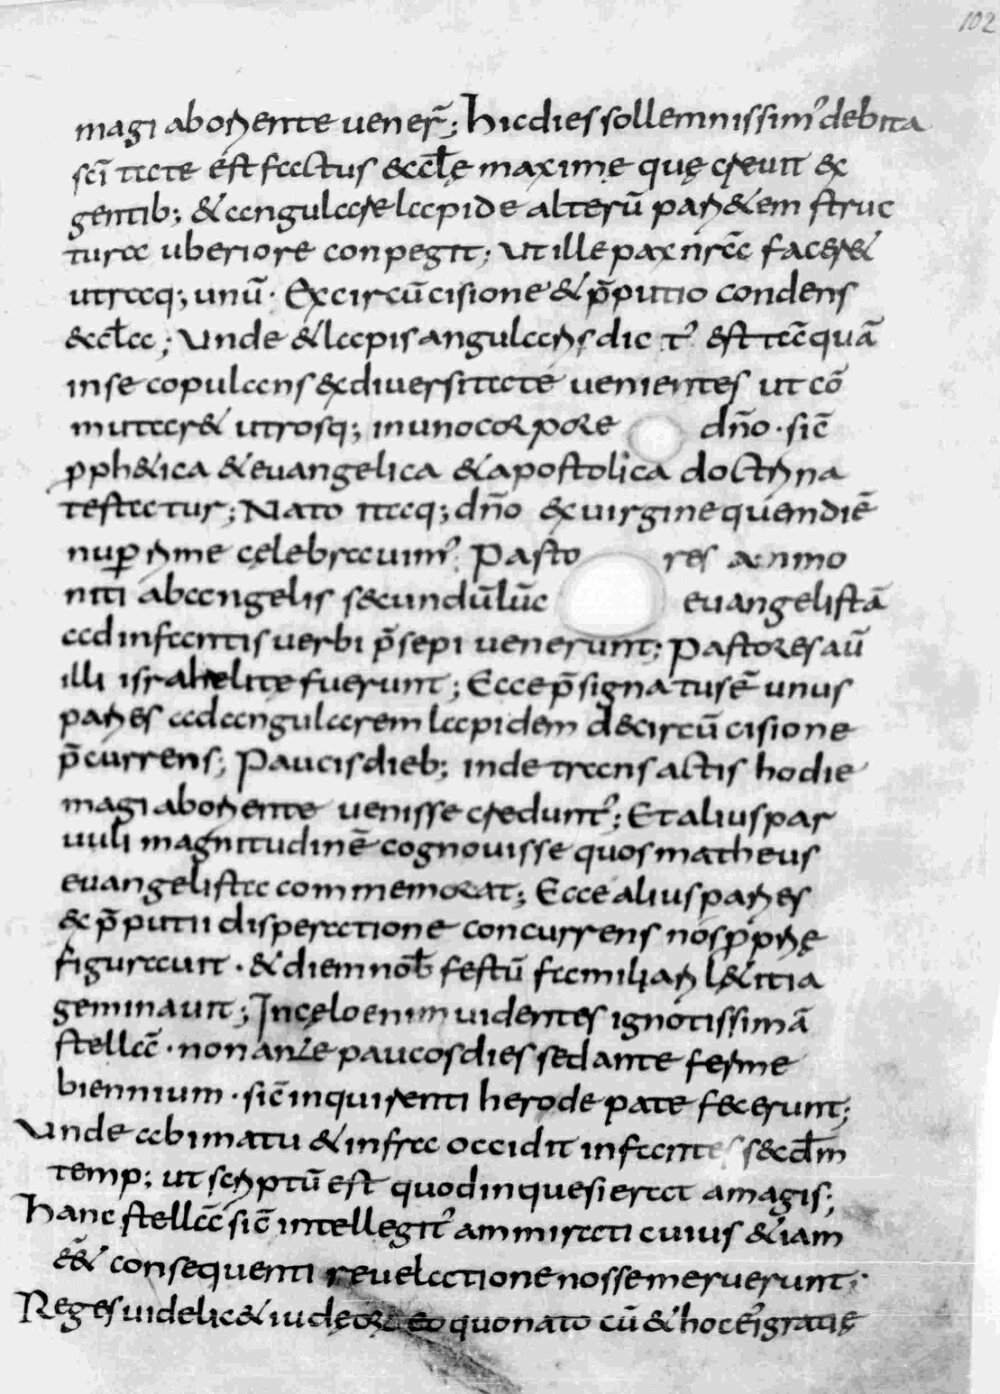 102
magi aboriente uener̄; hic dies sollemnissim' debita
sc̄i tate est factus &ccl̄ę maximę quę creuit &x
gentib; & angulare lapide alterū pari&em struc
tura uberiore conpegit; Ut ille pax nr̄a facer&
utraq; unū· Ex circūcisione & p̄putio condens
&ccl̄a; Unde & lapis angularis dict' est tā quā
inse copulans &xdiuersitate uenientes ut cō
mutar& utrosq; inunocorpore dn̄o· sic̄
pph&ica & euangelica & apostolica doctrina
testatur; Nato itaq; dn̄o &xuirgine quemdiē
nup rime celebrauim'; Pasto res a mmo
niti abangelis secundūlūc euangelistā
ad infantis uerbi p̄sepi uenerunt; Pastores aū
illi israhelitę fuerunt; Ecce p̄signatus ē unus
paries adangularem lapidem d&circū cisione
p̄currens; Paucis dieb; inde transactis hodie
magi aboriente uenisse credunt'; Et alius par
uuli magnitudinē cognouisse quos matheus
euangelista commemorat; Ecce alius paries
&x p̄putii disparatione concurrens nos proprię
figurauit· & diem nob̄ festū familiari l&itia
geminauit; Incęlo enim uidentes ignotissimā
stellā· non ante paucos dies sed ante ferme
biennium· sic̄ inquirenti herode pate fecerunt;
Unde abimatu & infra occidit infantes sec̄dm
temp; ut scriptū est quod inquesierat amagis;
Hanc stellā sic̄ intellegit' ammirati cuius &iam
& consequenti reuelatione nosse meruerunt;
Reges uidelic& iudęorz eo quonato cū & hoc ei gratię